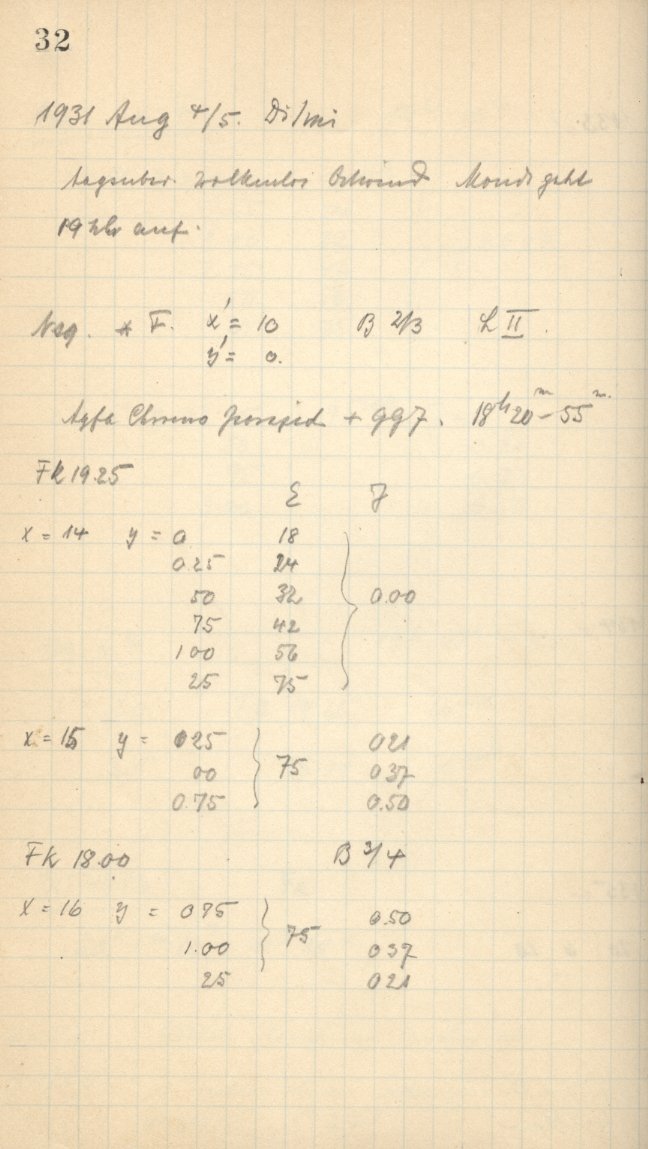 32
1931 Aug 4/5. Di/Mi
tagsüber. wolkenlos Ostwind Mond geht
19 Uhr auf.
Neg. * F. x' = 10 B 2/3 L II.
y' = 0.
Agfa Chromo + gg7. 18h 20m - 55m.
Fk 19.25
E J
x = 14 y = 0 18
0.25 24
50 32 0.00
75 42
100 56
25 75
x = 15 y = 025 021
00 75 037
0.75 0.50
Fk 18.00 B 3/4
x = 16 y = 075 0.50
1.00 75 037
25 021